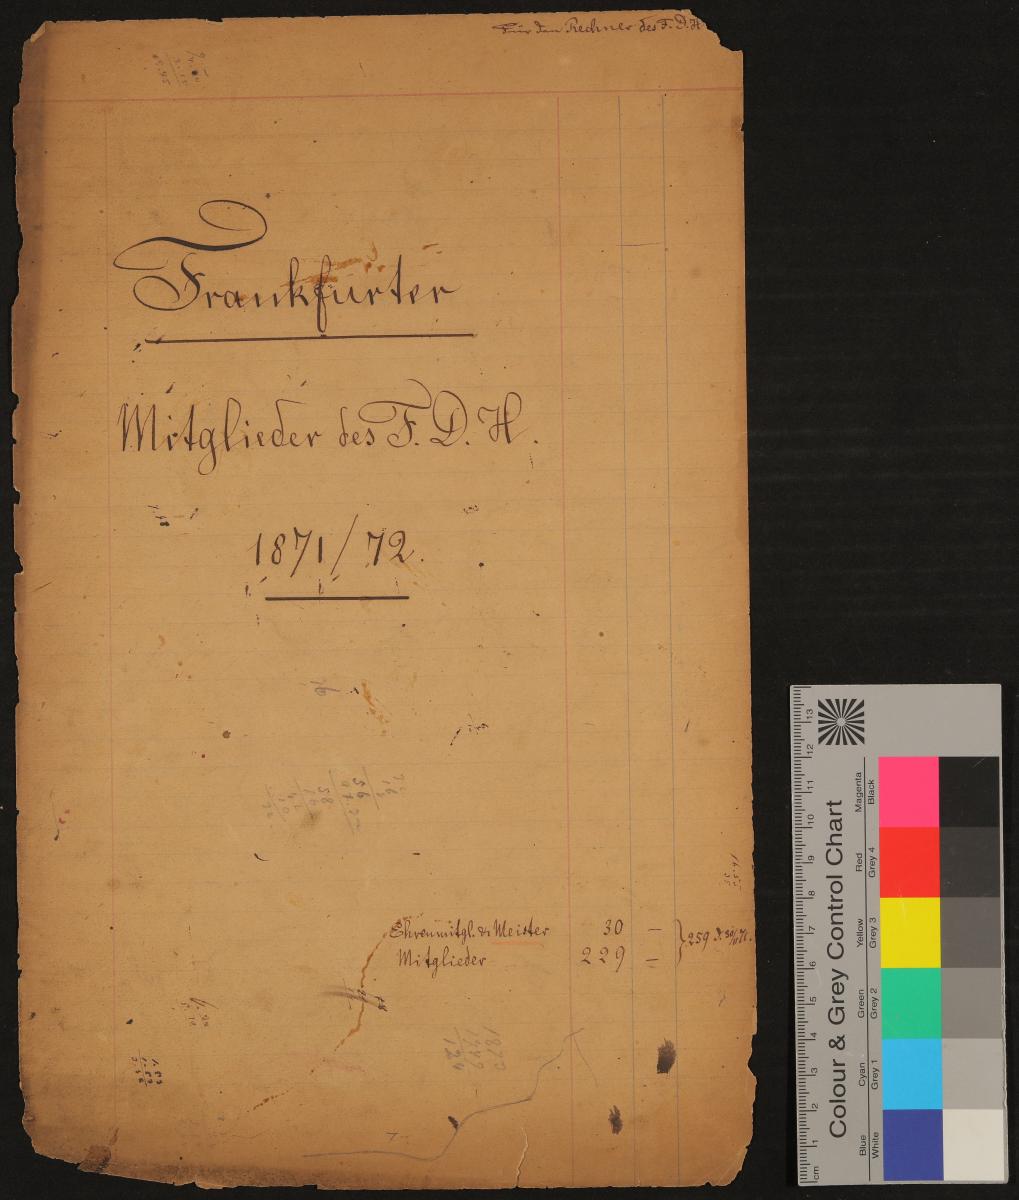 Für den Rechner des F.D.H.
Frankfurter
Mitglieder des F. D. H.
1871/72.
16
Ehrenmitgl. & Meister 30 —
Mitglieder 229 =
259
1873
1749
124
Colour & Grey Control Chart
Blue Cyan Green Yellow Red Magenta
White Grey 1 Grey 2 Grey 3 Grey 4 Black
cm 1 2 3 4 5 6 7 8 9 10 11 12 13